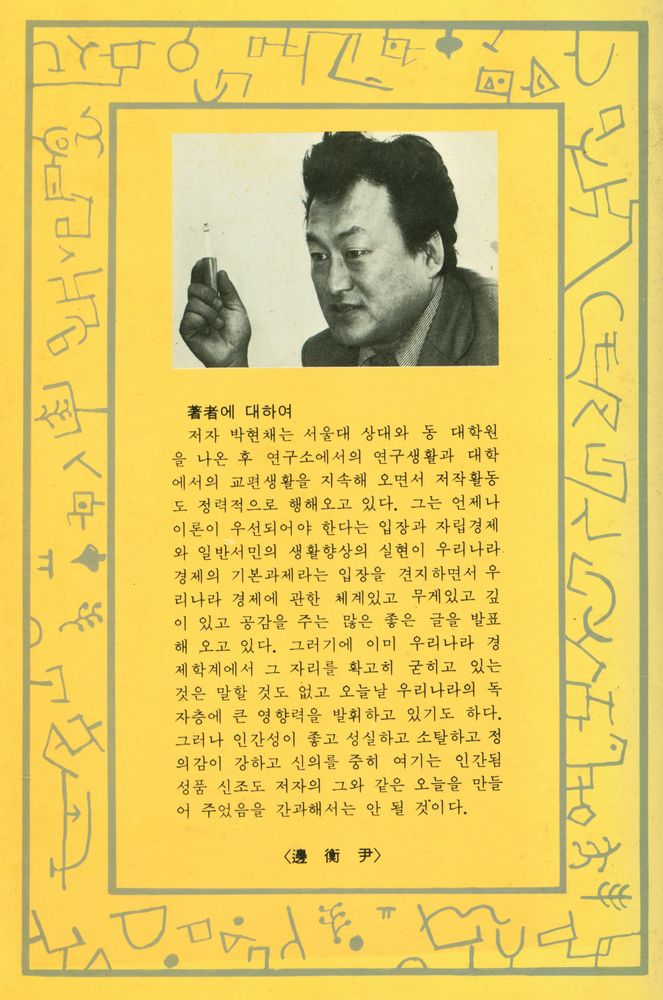 著者에 대하여
저자 박현채는 서울대 상대와 동 대학원
을 나온 후 연구소에서의 연구생활과 대학
에서의 교편생활을 지속해 오면서 저작활동
도 정력적으로 행해오고 있다. 그는 언제나
이론이 우선되어야 한다는 입장과 자립경제
와 일반서민의 생활향상의 실현이 우리나라
경제의 기본과제라는 입장을 견지하면서 우
리나라 경제에 관한 체계있고 무게있고 깊
이 있고 공감을 주는 많은 좋은 글을 발표
해 오고 있다. 그러기에 이미 우리나라 경
제학계에서 그 자리를 확고히 굳히고 있는
것은 말할 것도 없고 오늘날 우리나라의 독
자층에 큰 영향력을 발휘하고 있기도 하다.
그러나 인간성이 좋고 성실하고 소탈하고 정
의감이 강하고 신의를 중히 여기는 인간됨
성품 신조도 저자의 그와 같은 오늘을 만들
어 주었음을 간과해서는 안 될 것이다.
〈邊 衡 尹〉